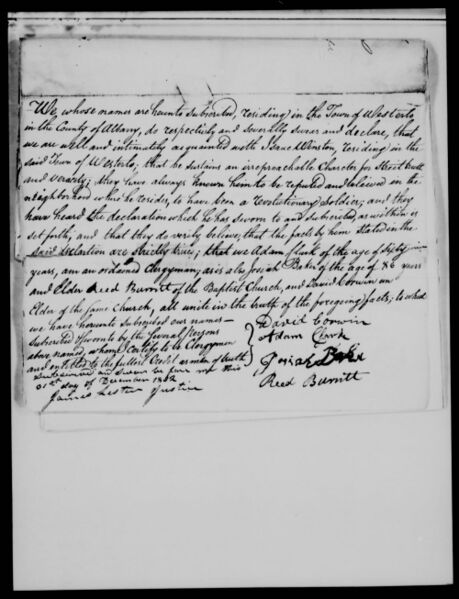 We, whose names are hereunto Subscribed, residing in the Town of Westerlo
in the County of Albany, do respectively and severally swear and declare, that
we are well and intimately acquainted with Isaac Winston, residing in the
said Town of Westerlo; that he sustains an irreproachable Charecter for Strict truth
and veracity; they have always known him to be reputed and believed in the
neighborhood where he resides, to have been a revolutionary soldier; and they
have heard the declaration which he has sworn to and subscribed, as within is
set forth; and that they do verily believe, that the facts by him stated in the
said declartion are strictly true; that we Adam Clark of the age of sixty
years, am an ordained Clergyman; as is also Josiah Baker of the age of 86 years
and Elder Reed Burritt of the Baptist Church, and David Corwin an
Elder of the same Church, all unite in the truth of the foregoing facts, to which
we have hereunto Subscribed our names—
Subscribed & Sworn to by the several Persons
above named, whom I certify to be Clergymen
and entitled to the fullest Credit as men of truth
Subscribed and Sworn before me this
day of December 1832
James Lester Justice
David Corwin
Adam Clark
Josiah Baker
Reed Burritt